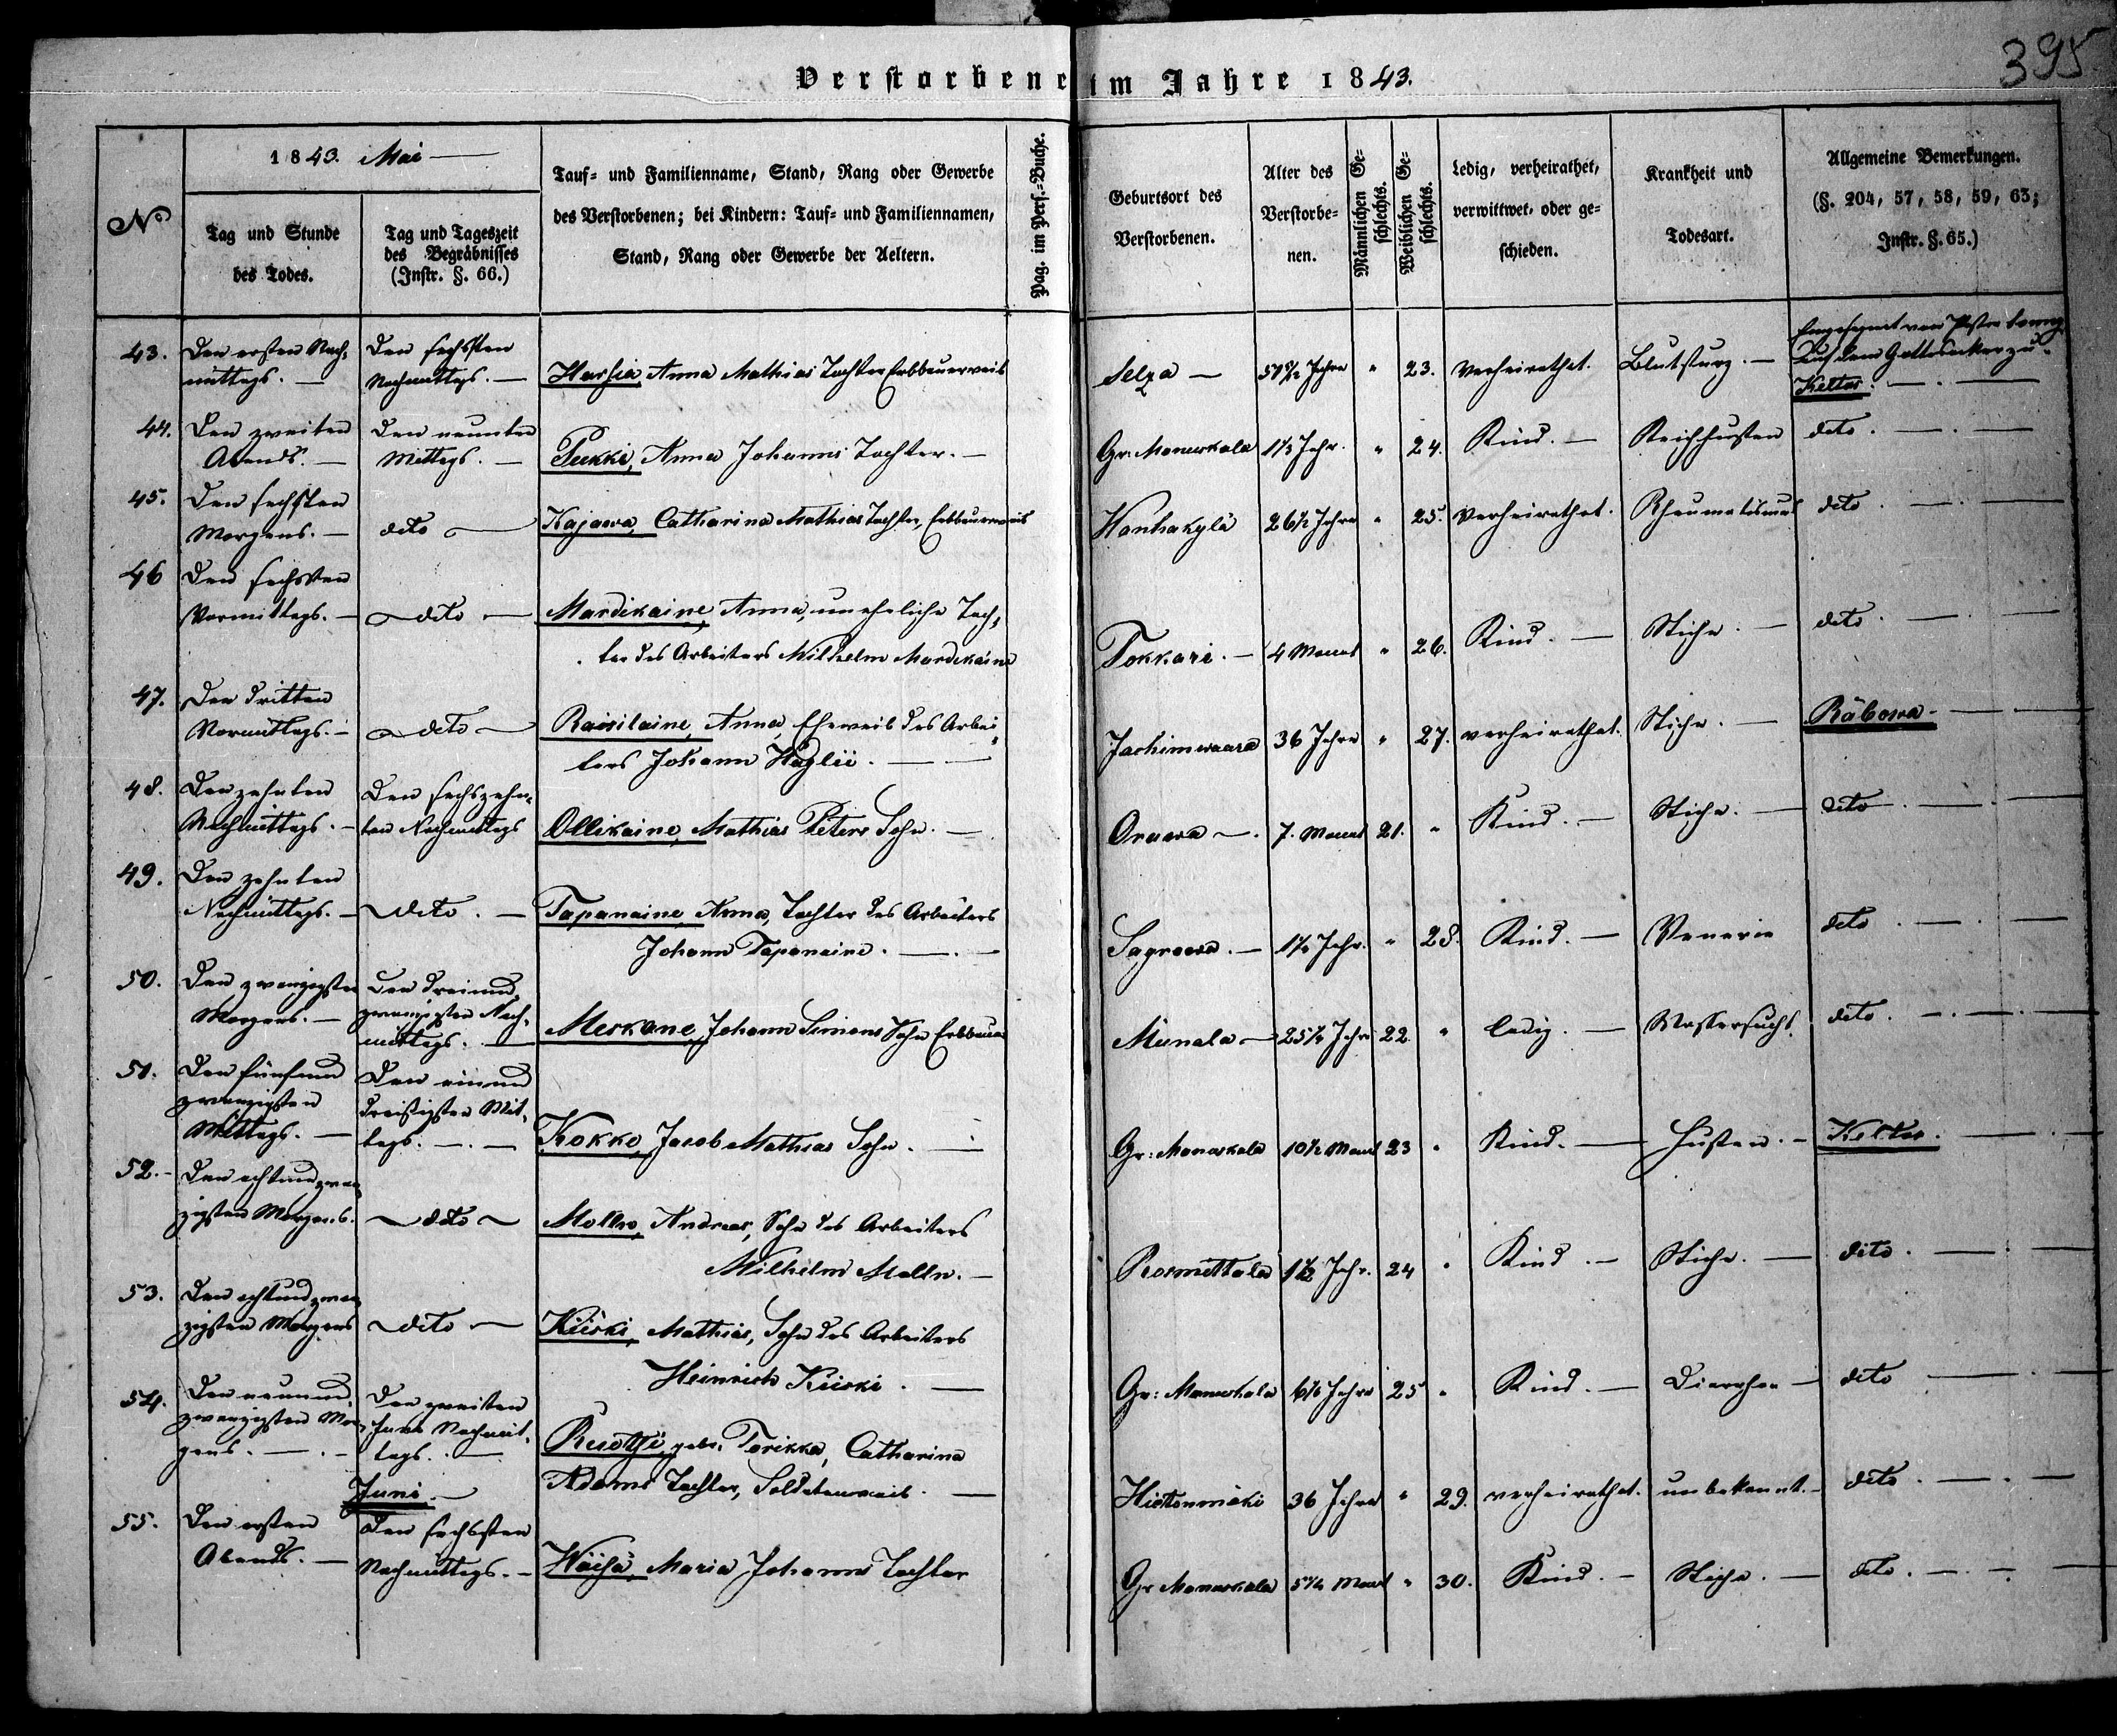 395
Verstorbene im Jahre 1843.
No
1843. Mai —
Tag und Stunde
des Todes.
Tag und Tageszeit
des Begräbnisses
(Instr. §. 66.)
Tauf= und Familienname, Stand, Rang oder Gewerbe
des Verstorbenen; bei Kindern: Tauf= und Familiennamen,
Stand, Rang oder Gewerbe der Aeltern.
Pag. im Pers.=Buche.
Geburtsort des
Verstorbenen.
Alter des
Verstorbe=
nen.
Männlichen Ge=
schlechts.
Weiblichen Ge=
schlechts.
Ledig, verheirathet,
verwittwet, oder ge=
schieden.
Krankheit und
Todesart.
Allgemeine Bemerkungen.
(§. 204, 57, 58, 59, 63;
Instr. §. 65.)
43. Den ersten Nach=
mittags. —
Den sechsten
Nachmittags. —
Anna Mathias Tochter Erbbauerweib
Selza — 57 1/2 Jahre " 23. verheirathet. Blutsturz. —
Eingesegnet von Pastor
Auf dem Gottesacker zu
Keltos. —
44. Den zweiten
Abends. —
Den neunten
Mittags. —
Pukki, Anna Johanns Tochter. —
Gr: Manuskala 1 1/3 Jahr. " 24. Kind. — Keichhusten dito. —
45. Den sechsten
Morgens. —
dito —
Kajawa, Catharina Mathias Tochter, Erbbauerweib
Wanhakylä 26 1/2 Jahre " 25. verheirathet. Rheumatismus dito. —
46 Den sechsten
Vormittags. —
dito —
Mardikaine, Anna, uneheliche Toch=
ter des Arbeiters Wilhelm Mardikaine
Tokkari. — 4 Monat " 26. Kind. — Stiche. — dito. —
47. Den dritten
Vormittags. —
dito —
Raisilaine, Anna, Eheweib des Arbei=
ters Johann
36 Jahre " 27. verheirathet. Stiche. — Räbowa —
48. Den zehnten
Nachmittags. —
Den sechszehn=
ten Nachmittags
Ollikaine, Mathias Peters Sohn. —
Orawa —. 7. Monat 21. " Kind. — Stiche. — dito —
49. Den zehnten
Nachmittags. —
dito. —
Tapanaine, Anna, Tochter des Arbeiters
Johann Tapanaine. —
" 28. Kind. — Venerie dito —
50. Den zwanzigsten
Morgens. —
Den dreiund
zwanzigsten Nach=
mittags. —
Johann Simons Sohn Erbbauer
22. " ledig. — Wassersucht. dito. —
51. Den fünfund
zwanzigsten
Mittags. —
Den einund
dreißigsten Mit=
tags. —
Kokko, Jacob Mathias Sohn. —
Gr: Manuskala 10 1/2 Monat 23 " Kind. — Husten. — Keltos. —
52. Den achtundzwan=
zigsten Morgens.
dito
Andreas, Sohn des Arbeiters
Wilhelm
24 " Kind. — Stiche. — dito. —
53. Den achtundzwan=
zigsten Morgens
dito —
Kiiski, Mathias, Sohn des Arbeiters
Heinrich Kiiski. —
Gr: Manuskala 25 " Kind. — Diarrhoe — dito —
54. Den neunund
zwanzigsten Mor=
gens. —
Den zweiten
Juni Nachmit=
tags. —
gebr. Torikka, Catharina
Adams Tochter, Soldatenweib. —
36 Jahre " 29. verheirathet. unbekannt. — dito. —
Juni. —
55. Den ersten
Abends. —
Den sechsten
Nachmittags. —
Maria Johanns Tochter
Gr Manuskala 5 1/4 Monat " 30. Kind. — Stiche. — dito. —